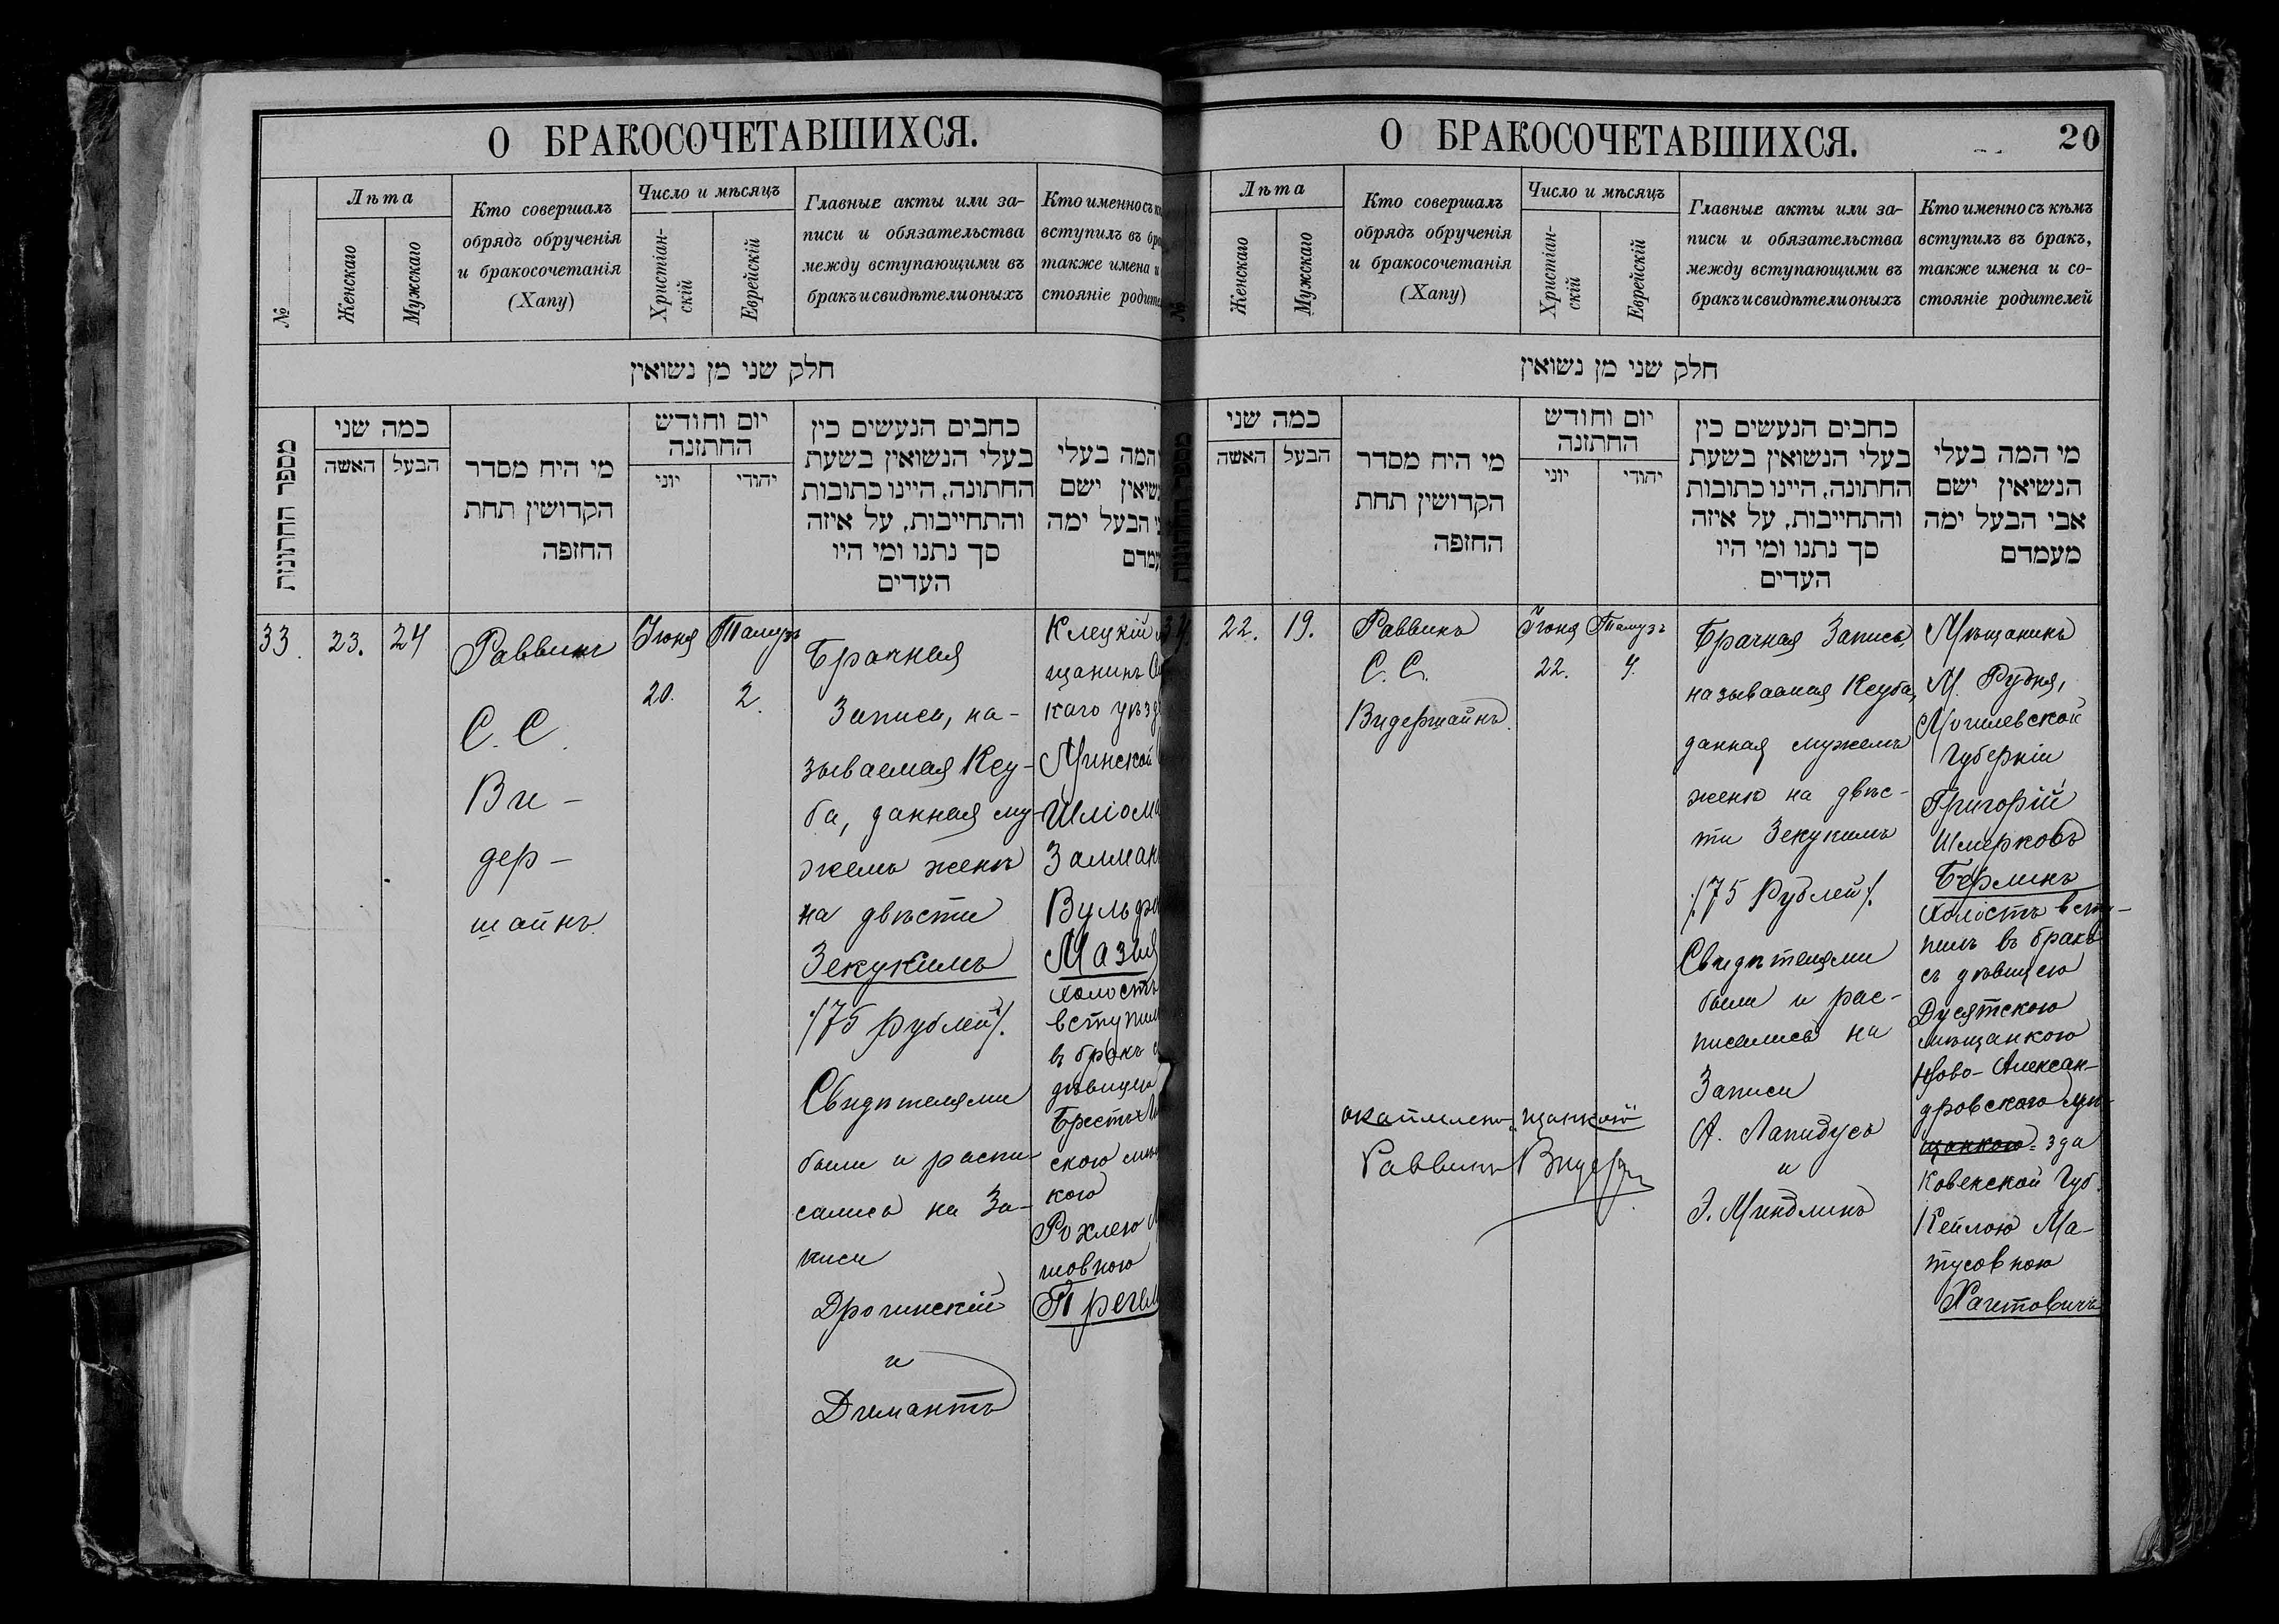 О БРАКОСОЧЕТАВШИХСЯ.
№
Лѣта
Женскаго
Мужскаго
Кто совершалъ
обрядъ обрученія
и бракосочетанія
(Хапу)
Число и мѣсяцъ
Христіан-
скій
Еврейскій
Главные акты или за-
писи и обязательства
между вступающими въ
бракъ и свидѣтели оныхъ
Кто именно съ
вступилъ въ
также имена и
стояніе
חלק שני מן נשואין
מספר החתונות
כמה שני
האשה
הבעל
מי היח מסדר
הקדושין תחת
החופה
יום וחודש
החתונה
יוני
יהודי
כתבים הנעשים בין
בעלי הנשואין בשעת
החתונה, היינו כתובות
והתחייבות, על איזה
סך נתנו ומי היו
העדים
המה בעלי
ישם
הבעל ימה
33.
23.
24
Раввинъ
С. С.
Ви-
дер-
шайнъ.
Іюня
20.
Тамузъ
2.
Брачная
Запись, на-
зываемая Кеу-
ба, данная му-
жемъ женѣ
на двѣсти
Зекукимъ
/:75 рублей:/.
Свидѣтелями
были и распи-
сались на За-
писи
Дрогинскій
и
Димантъ
Клецкій
щанинъ
каго
Минской
Шліома
Вульфо
холостъ
въ бракъ
дѣвицею
скою
кою
Рохлею
шовною
О БРАКОСОЧЕТАВШИХСЯ.
20
№
Лѣта
Женскаго
Мужскаго
Кто совершалъ
обрядъ обрученія
и бракосочетанія
(Хапу)
Число и мѣсяцъ
Христіан-
скій
Еврейскій
Главные акты или за-
писи и обязательства
между вступающими въ
бракъ и свидѣтели оныхъ
Кто именно съ кѣмъ
вступилъ въ бракъ,
также имена и со-
стояніе родителей
חלק שני מן נשואין
כמה שני
האשה
הבעל
מי היח מסדר
הקדושין תחת
החופה
יום וחודש
החתונה
יוני
יהודי
כתבים הנעשים בין
בעלי הנשואין בשעת
החתונה, היינו כתובות
והתחייבות, על איזה
סך נתנו ומי היו
העדים
מי המה בעלי
הנשיאין ישם
אבי הבעל ימה
מעמדם
34.
22.
19.
Раввинъ
С. С.
Видершайнъ.
Іюня
22.
Тамузъ
4.
Брачная Запись,
называемая Кеуба,
данная мужемъ
женѣ на двѣс-
ти Зекукимъ
/:75 Рублей:/.
Свидѣтелями
были и рас-
писались на
Записи
А. Лапидусъ
и
Э. Миндлинъ
Мѣщанинъ
М. Рудня,
Могилевской
Губерніи
Григорій
Шмерковъ
Берлинъ
холостъ всту-
пилъ въ бракъ
съ дѣвицею
Дусятскою
мѣщанкою
Ново-Алексан-
дровскаго уѣ-
щанкою = зда
Ковенской Губ.
Кейлою Ма-
тусовною
щанкою
Раввинъ